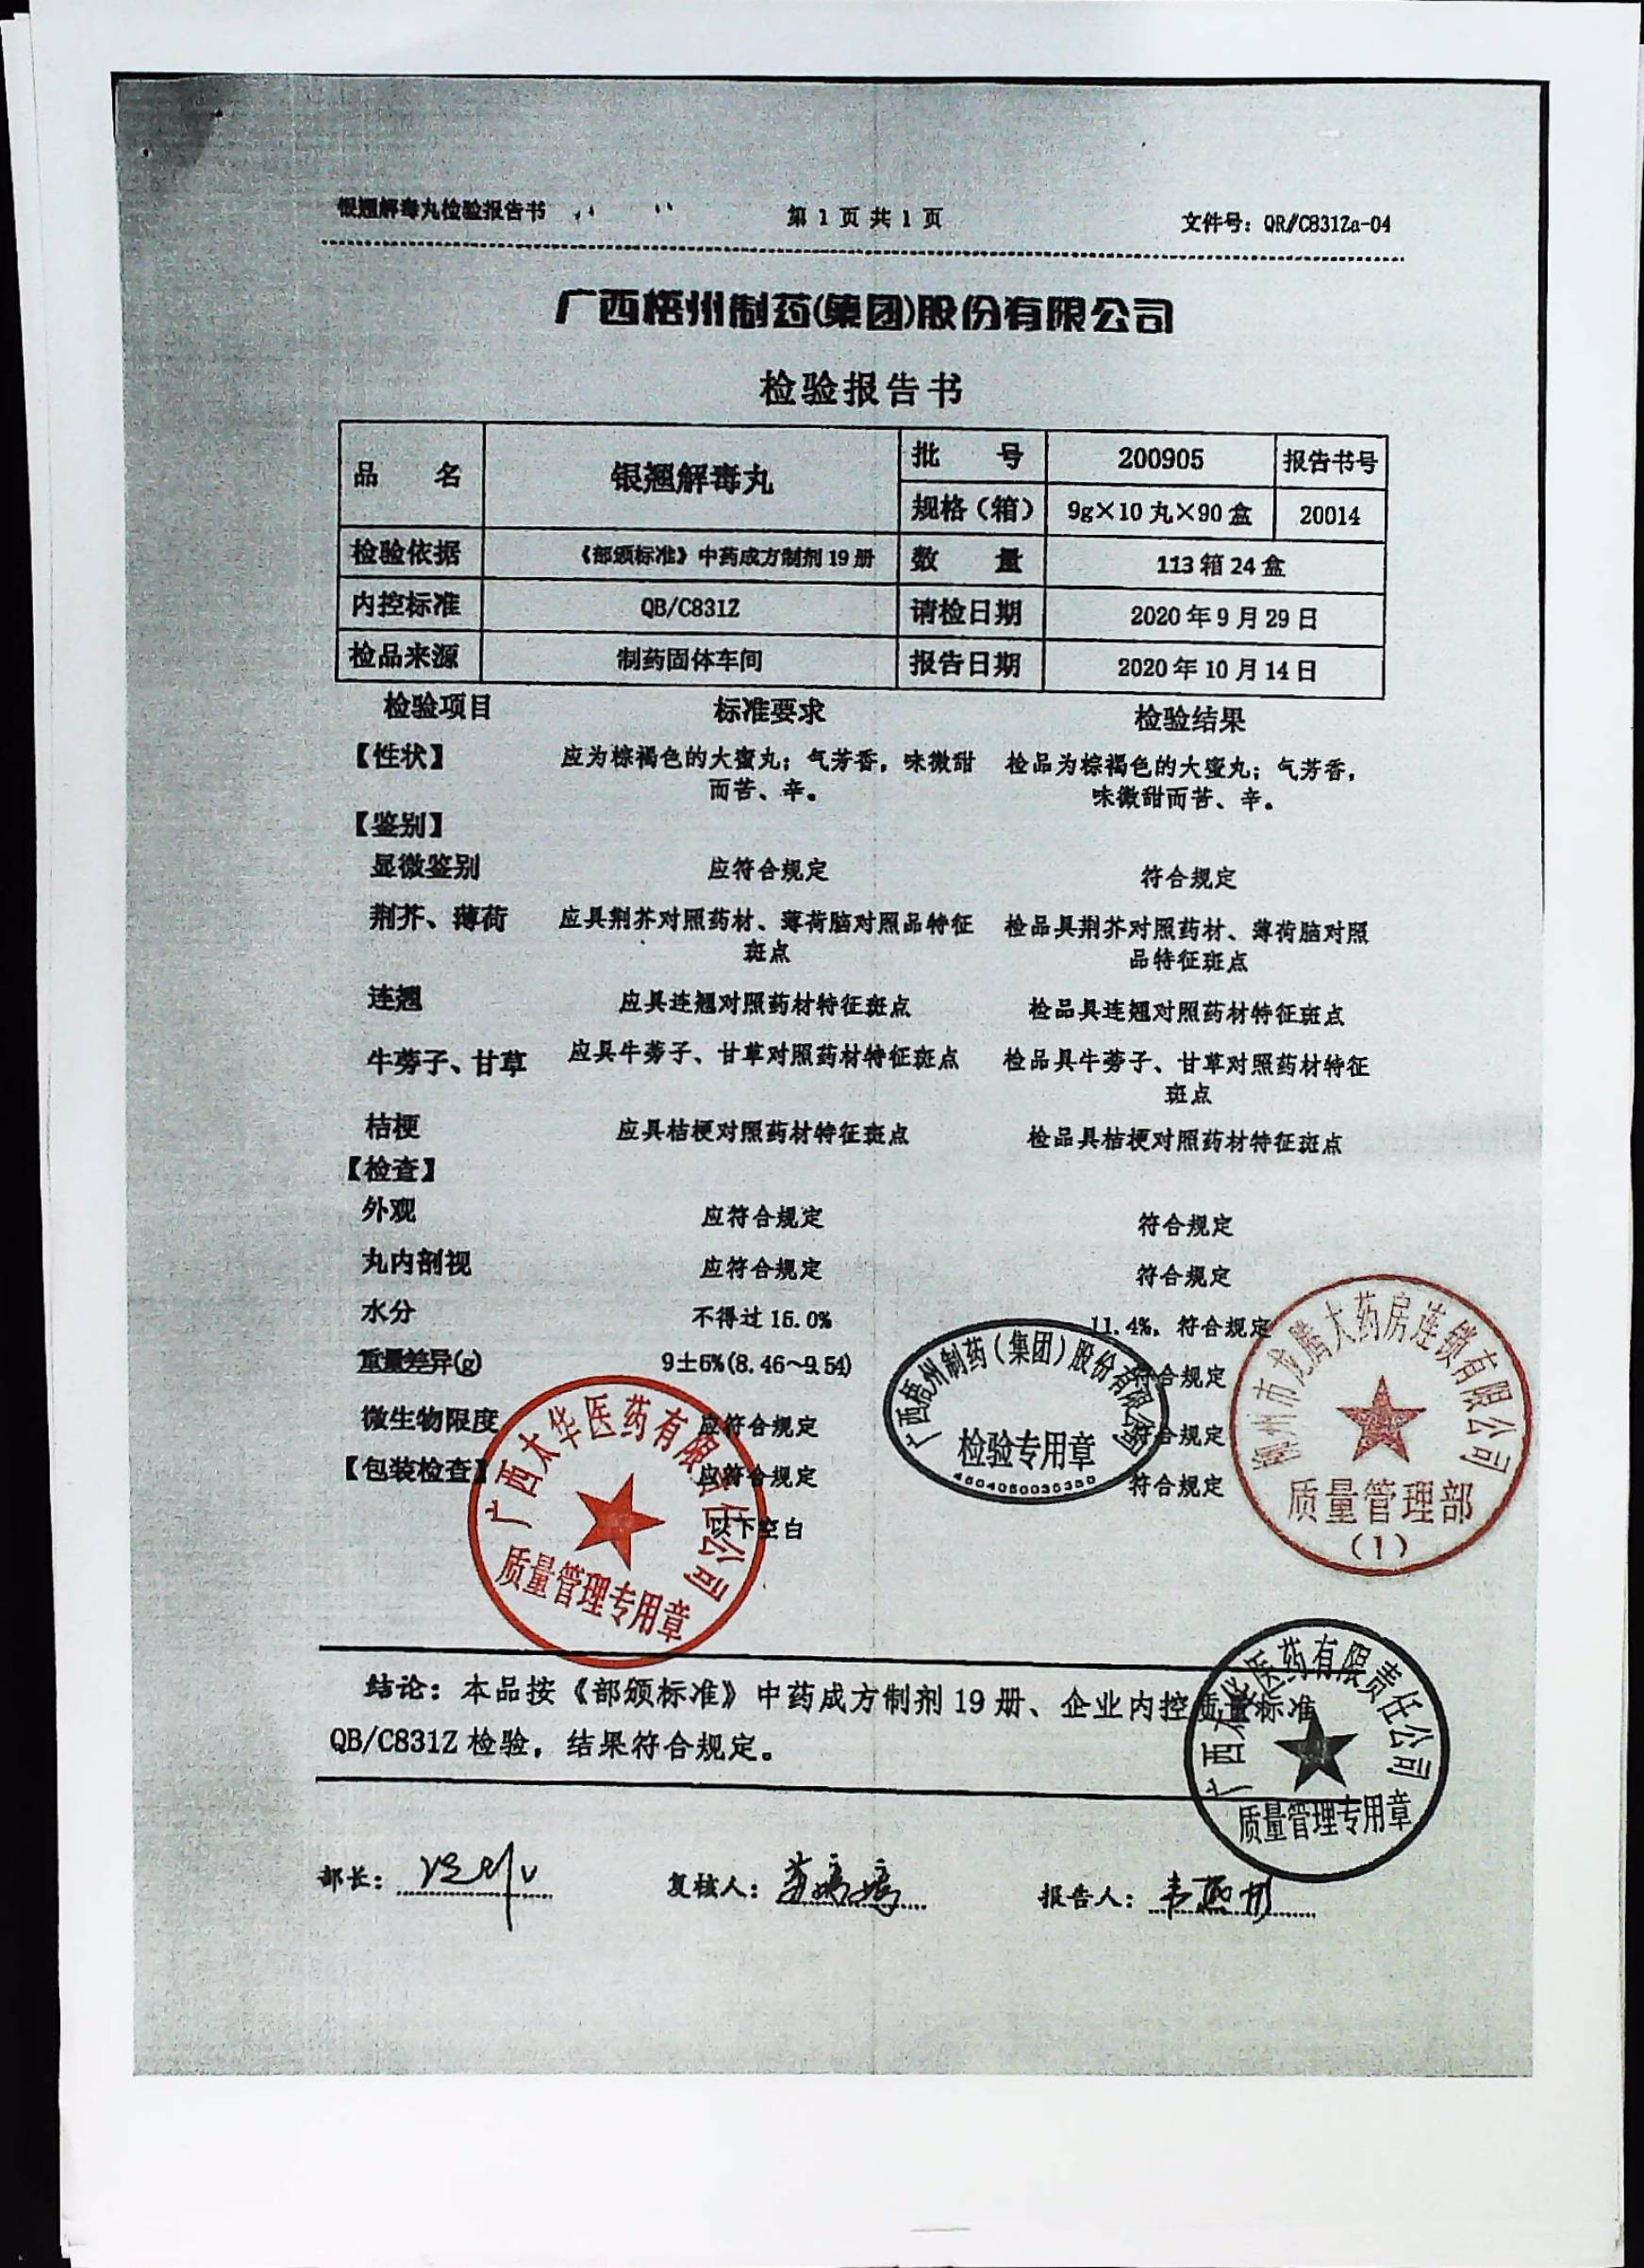 银翘解毒丸检验报告书 第 1 页 共 1 页 文件号：QR/C831Za-04
广西梧州制药(集团)股份有限公司
检验报告书
品 名 银翘解毒丸 批 号 200905 报告书号
规格（箱） 9g×10 丸×90 盒 20014
检验依据 《部颁标准》中药成方制剂 19 册 数 量 113 箱 24 盒
内控标准 QB/C831Z 请检日期 2020 年 9 月 29 日
检品来源 制药固体车间 报告日期 2020 年 10 月 14 日
检验项目 标准要求 检验结果
【性状】 应为棕褐色的大蜜丸；气芳香，味微甜 检品为棕褐色的大蜜丸；气芳香，
而苦、辛。 味微甜而苦、辛。
【鉴别】
显微鉴别 应符合规定 符合规定
荆芥、薄荷 应具荆芥对照药材、薄荷脑对照品特征 检品具荆芥对照药材、薄荷脑对照
斑点 品特征斑点
连翘 应具连翘对照药材特征斑点 检品具连翘对照药材特征斑点
牛蒡子、甘草 应具牛蒡子、甘草对照药材特征斑点 检品具牛蒡子、甘草对照药材特征
斑点
桔梗 应具桔梗对照药材特征斑点 检品具桔梗对照药材特征斑点
【检查】
外观 应符合规定 符合规定
丸内剖视 应符合规定 符合规定
水分 不得过 15.0% 11.4%，符合规定
重量差异(g) 9±6%(8.46～9.54) 符合规定
微生物限度 应符合规定 符合规定
【包装检查】 应符合规定 符合规定
以下空白
广西梧州制药（集团）股份有限公司
检验专用章
柳州市龙腾大药房连锁有限公司
质量管理部
（1）
广西太华医药有限责任公司
质量管理专用章
结论：本品按《部颁标准》中药成方制剂 19 册、企业内控质量标准
QB/C831Z 检验，结果符合规定。
广西太华医药有限责任公司
质量管理专用章
部长： 复核人： 报告人：